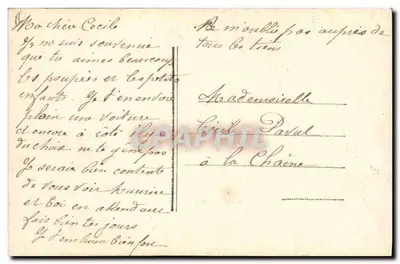 Ma chère Cecile
Je me suis souvenue
que tu aimes beaucoup
les poupées et les petits
enfants. Je t'en envoie
plein une voiture
et encore à côté
du choix ne te gène pas
Je serais bien contente
de vous voir Maurice
et toi en attendant
fais bien tes jours
Je t'embrasse bien fort
Ne m'oublie pas auprès de
tous les tiens
Mademoiselle
Cécile
à la Chaine
DELCAMPE